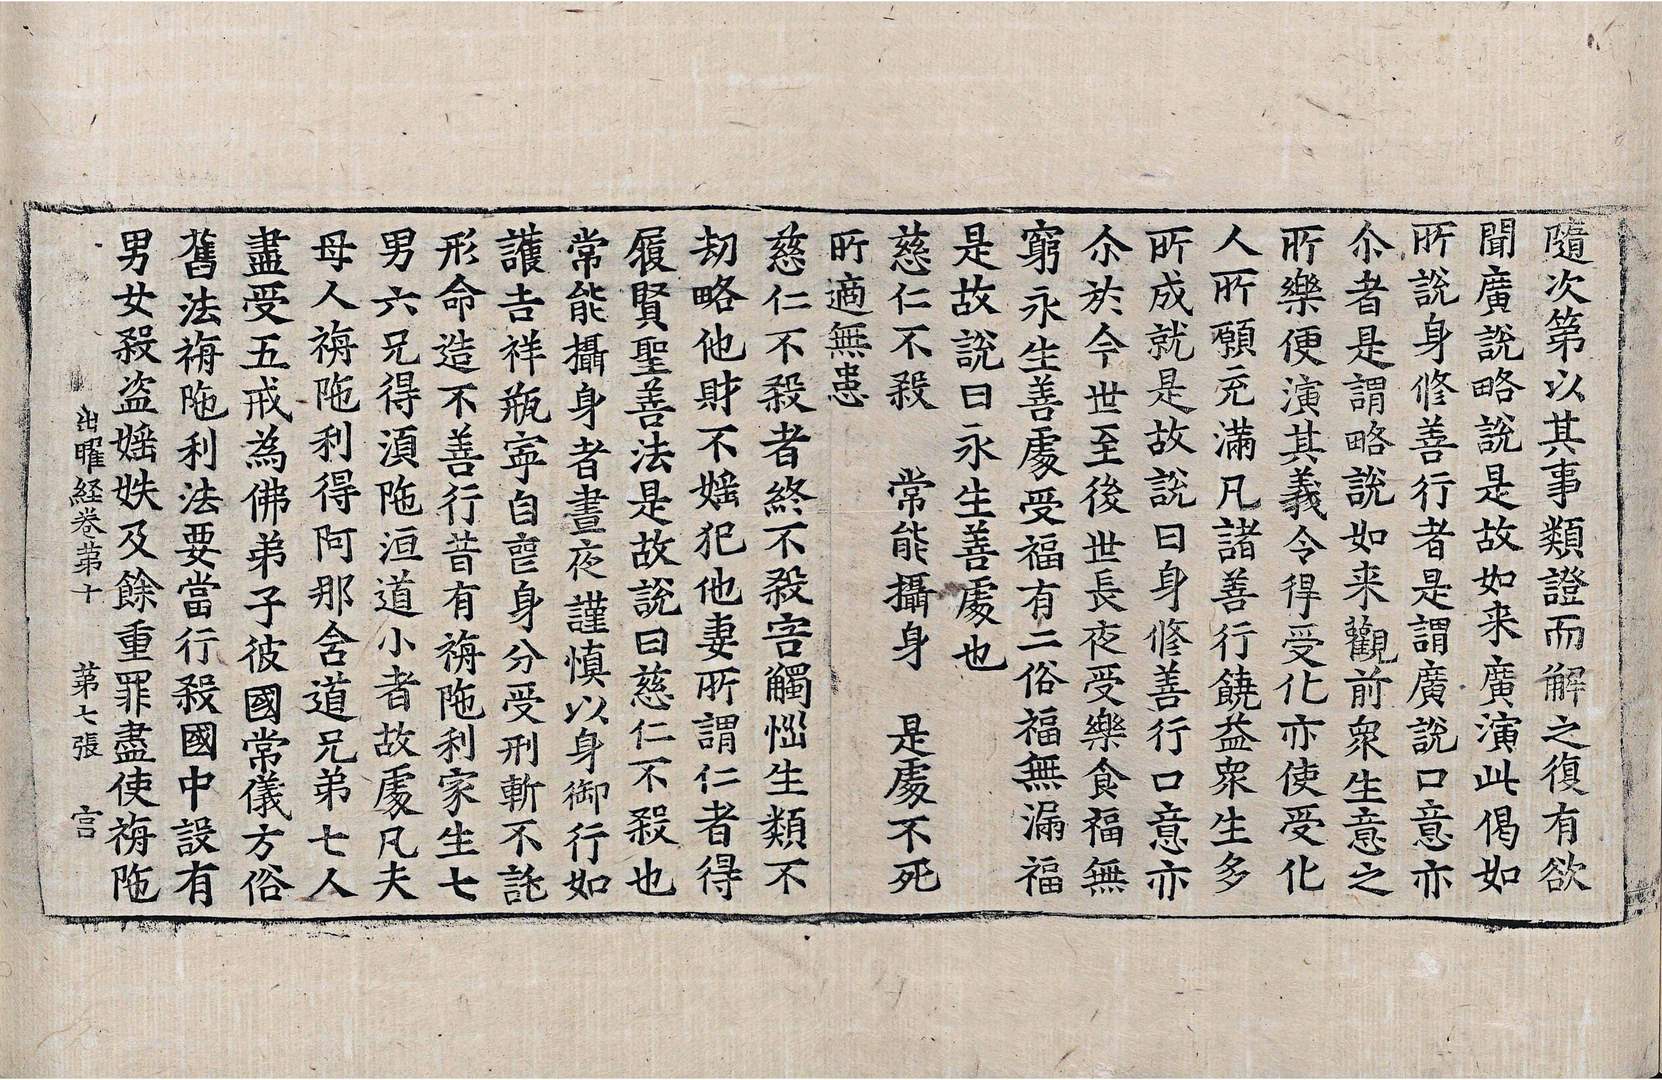 隨次第以其事類證而解之復有欲
聞廣說略說是故如来廣演此偈如
所說身修善行者是謂廣說口意亦
尒者是謂略說如来觀前衆生意之
所樂便演其義令得受化亦使受化
人所願充滿凡諸善行饒益衆生多
所成就是故說曰身修善行口意亦
尒於今世至後世長夜受樂食福無
窮永生善處受福有二俗福無漏福
是故說曰永生善處也
慈仁不殺　常能攝身　是處不死
所適無患
慈仁不殺者終不殺害觸惱生類不
劫略他財不婬犯他妻所謂仁者得
履賢聖善法是故說曰慈仁不殺也
常能攝身者晝夜謹慎以身御行如
護吉祥瓶寧自喪身分受刑斬不託
形命造不善行昔有栴陁利家生七
男六兄得湏陁洹道小者故處凡夫
母人栴陁利得阿那含道兄弟七人
盡受五戒為佛弟子彼國常儀方俗
舊法栴陁利法要當行殺國中設有
男女殺盜婬妷及餘重罪盡使栴陁
出曜経卷第十　第七張　宫